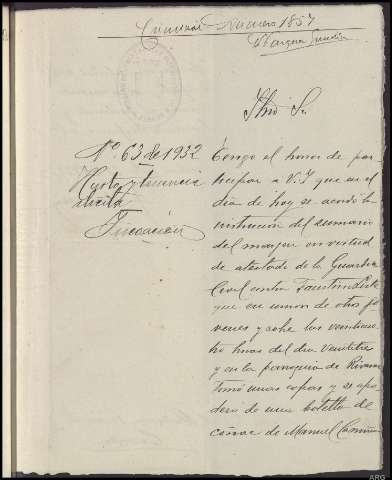 1857
Ilmo Sr.
Nº. 63 de 1932
Hurto y tenencia
ilicita
Tengo el honor de par-
ticipar a V.I que en el
dia de hoy se acordó la
instrucción del sumario
del margen en virtud
de atestado de la Guardia
Civil contra Faustino
que en union de otros jo-
venes y sobre las veintiocho
horas del dia veintitres
y en la parroquia de
tomó unas copas y se apo-
deró de una botella de
coñac de Manuel
ARG